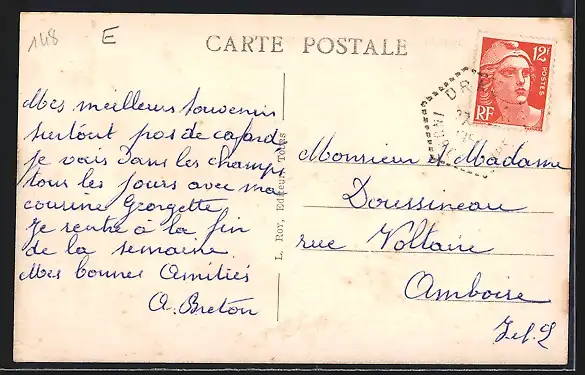 148 E
CARTE POSTALE
12F
POSTES
RF
Mes meilleurs souvenirs
surtout pas de cafard
je vais dans les champs
tous les jours avec ma
cousine Georgette
je rentre à la fin
de la semaine.
Mes bonnes Amitiés
A. Breton
L. Roy, Editeur, Tours
Monsieur et Madame
Doussineau
rue Voltaire
Amboise
I et L